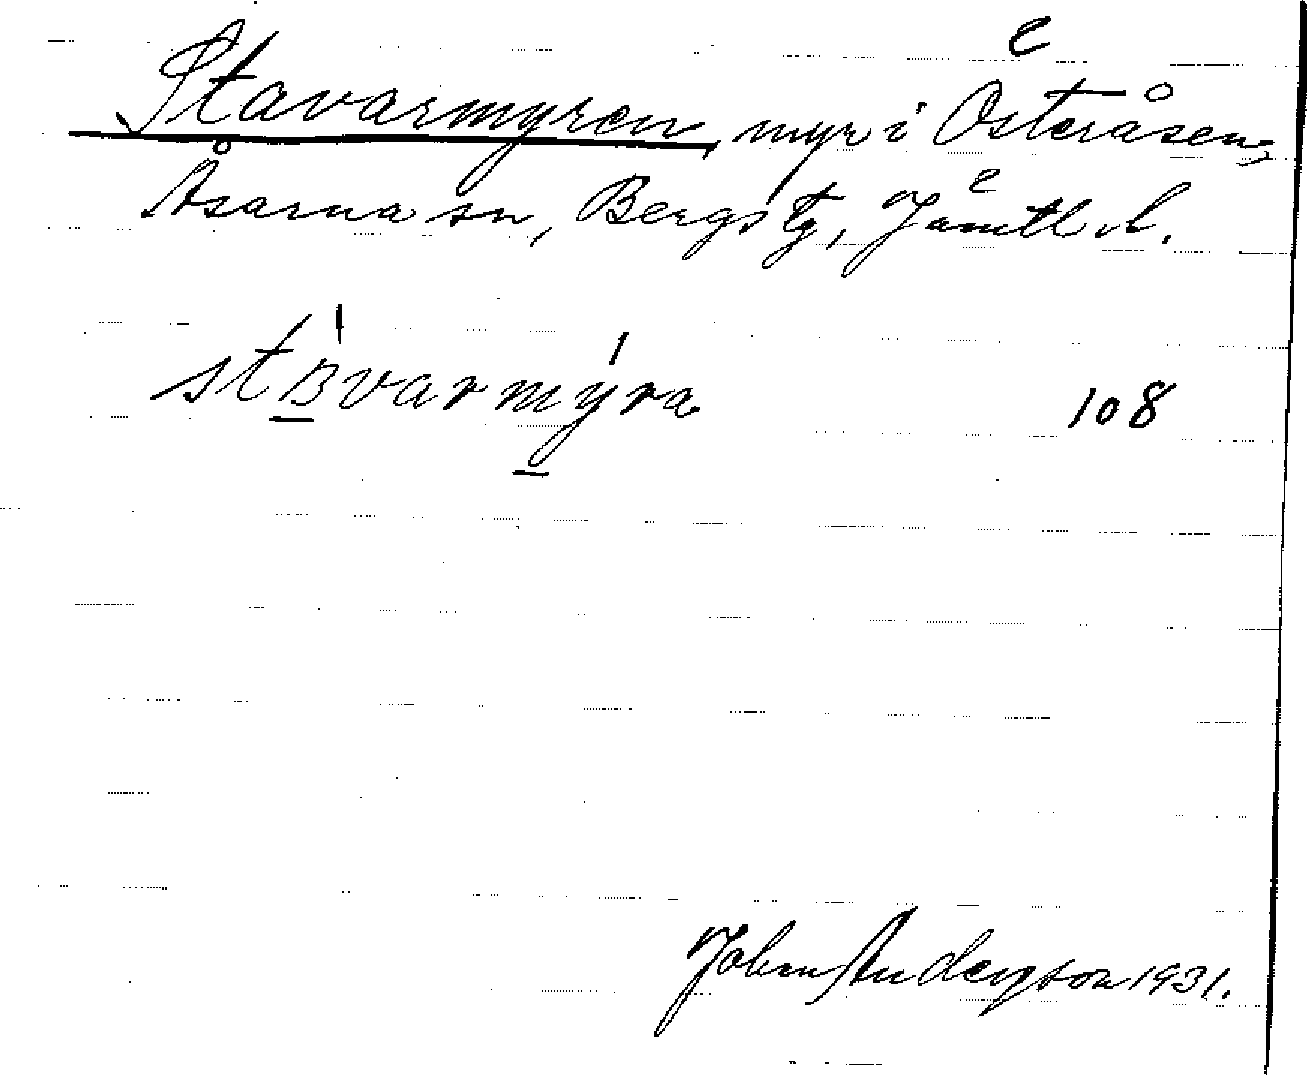 Stavarmyren, myr i Österåsen,
Åsarna sn, Bergs tg, Jämtl. l.
108
John Anderson 1931.